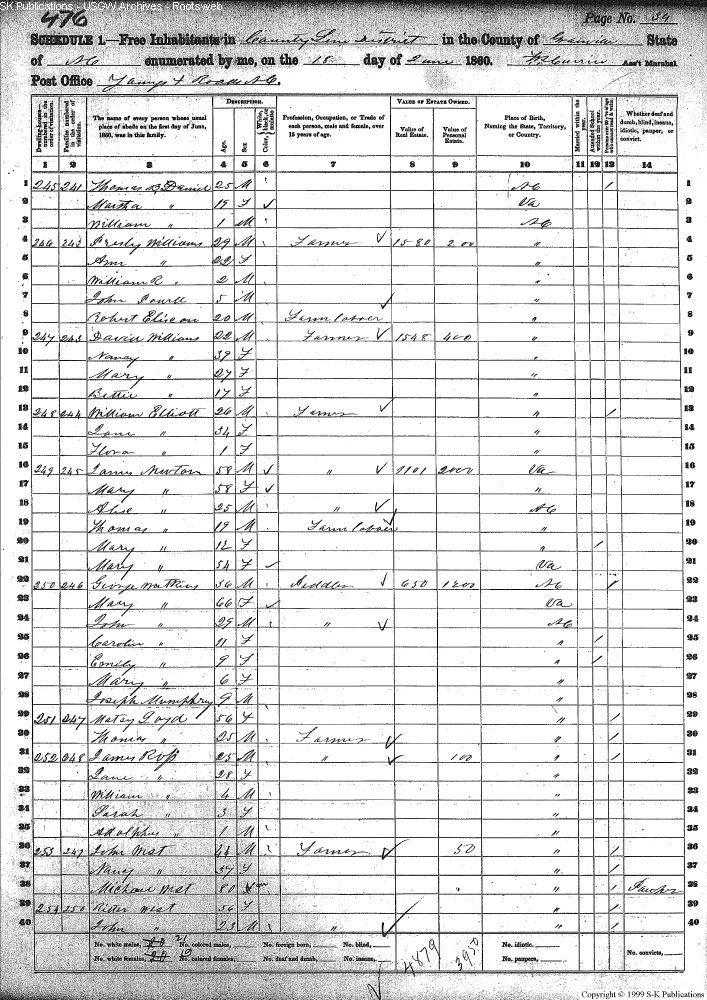 SK Publications - USGW Archives - Rootsweb
476
Page No. 39
SCHEDULE 1.—Free Inhabitants in County Line District in the County of Granville State
of NC enumerated by me, on the 18 day of June 1860. Ass't Marshal
Post Office
DESCRIPTION. VALUE OF ESTATE OWNED.
Dwelling-houses—numbered in the order of visitation. Families numbered in the order of visitation. The name of every person whose usual place of abode on the first day of June, 1860, was in this family. Age. Sex. Color, White, black, or mulatto. Profession, Occupation, or Trade of each person, male and female, over 15 years of age. Value of Real Estate. Value of Personal Estate. Place of Birth, Naming the State, Territory, or Country. Married within the year. Attended School within the year. Whether deaf and dumb, blind, insane, idiotic, pauper, or convict.
1 2 3 4 5 6 7 8 9 10 11 12 13 14
1 245 241 Thomas B Daniel 25 M NC / 1
2 Martha " 19 F Va 2
3 William " 1 M NC 3
4 246 242 Presley Williams 29 M Farmer 1580 200 " 4
5 Ann " 22 F " 5
6 William R " 2 M " 6
7 John Powell 5 M " 7
8 Robert 20 M Farm laborer " 8
9 247 243 David Williams 22 M Farmer 1548 400 " 9
10 Nancy " 39 F " 10
11 Mary " 27 F " 11
12 Bettie " 17 F " 12
13 248 244 William Elliott 26 M Farmer " / 13
14 Jane " 34 F " 14
15 Flora " 1 F " 15
16 249 245 James Newton 58 M " 1101 2000 Va 16
17 Mary " 58 F " 17
18 " 25 M " NC 18
19 Thomas " 19 M Farm laborer " 19
20 Mary " 12 F " / 20
21 Mary " 54 F Va 21
22 250 246 George Watkins 56 M Peddler 650 1200 NC / 22
23 Mary " 66 F Va 23
24 John " 29 M " NC 24
25 Caroline " 11 F " / 25
26 Emily " 9 F " / 26
27 Mary " 6 F " 27
28 Joseph Mumphry 9 M " 28
29 251 247 Loyd 56 F " / 29
30 Thomas " 25 M Farmer " / 30
31 252 248 James Ross 25 M " 100 " / 31
32 Jane " 28 F " 32
33 William " 4 M " 33
34 Sarah " 3 F " 34
35 Adolphus " 1 M " 35
36 253 249 John West M Farmer 50 " / 36
37 Nancy " 37 F " / 37
38 West 80 " " / Pauper 38
39 254 250 West 56 F " / 39
40 John " 23 M " " / 40
No. white males, 21 No. colored males, No. foreign born, No. blind, No. idiotic,
No. white females, 19 No. colored females, No. deaf and dumb, No. insane, No. paupers, No. convicts,
4879 3950
Copyright © 1999 S-K Publications